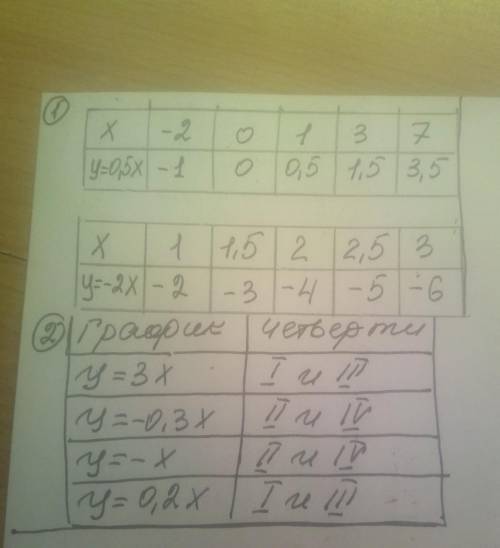 ①
x -2 0 1 3 7
y=0,5x -1 0 0,5 1,5 3,5
x 1 1,5 2 2,5 3
y=-2x -2 -3 -4 -5 -6
② График четверти
y=3x I и III
y=-0,3x II и IV
y=-x II и IV
y=0,2x I и III